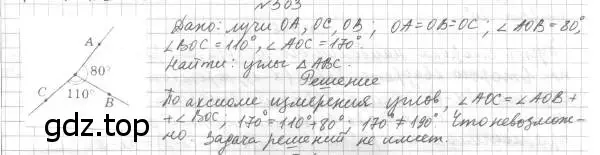 №503
Дано: лучи OA, OC, OB; OA=OB=OC; ∠AOB=80°,
∠BOC=110°, ∠AOC=170°.
Найти: углы △ABC.
Решение
По аксиоме измерения углов, ∠AOC=∠AOB+
+∠BOC; 170°=110°+80°; 170°≠190°. Что невозмож-
но. Задача решений не имеет.
A
80°
110°
C
B
gdz.top